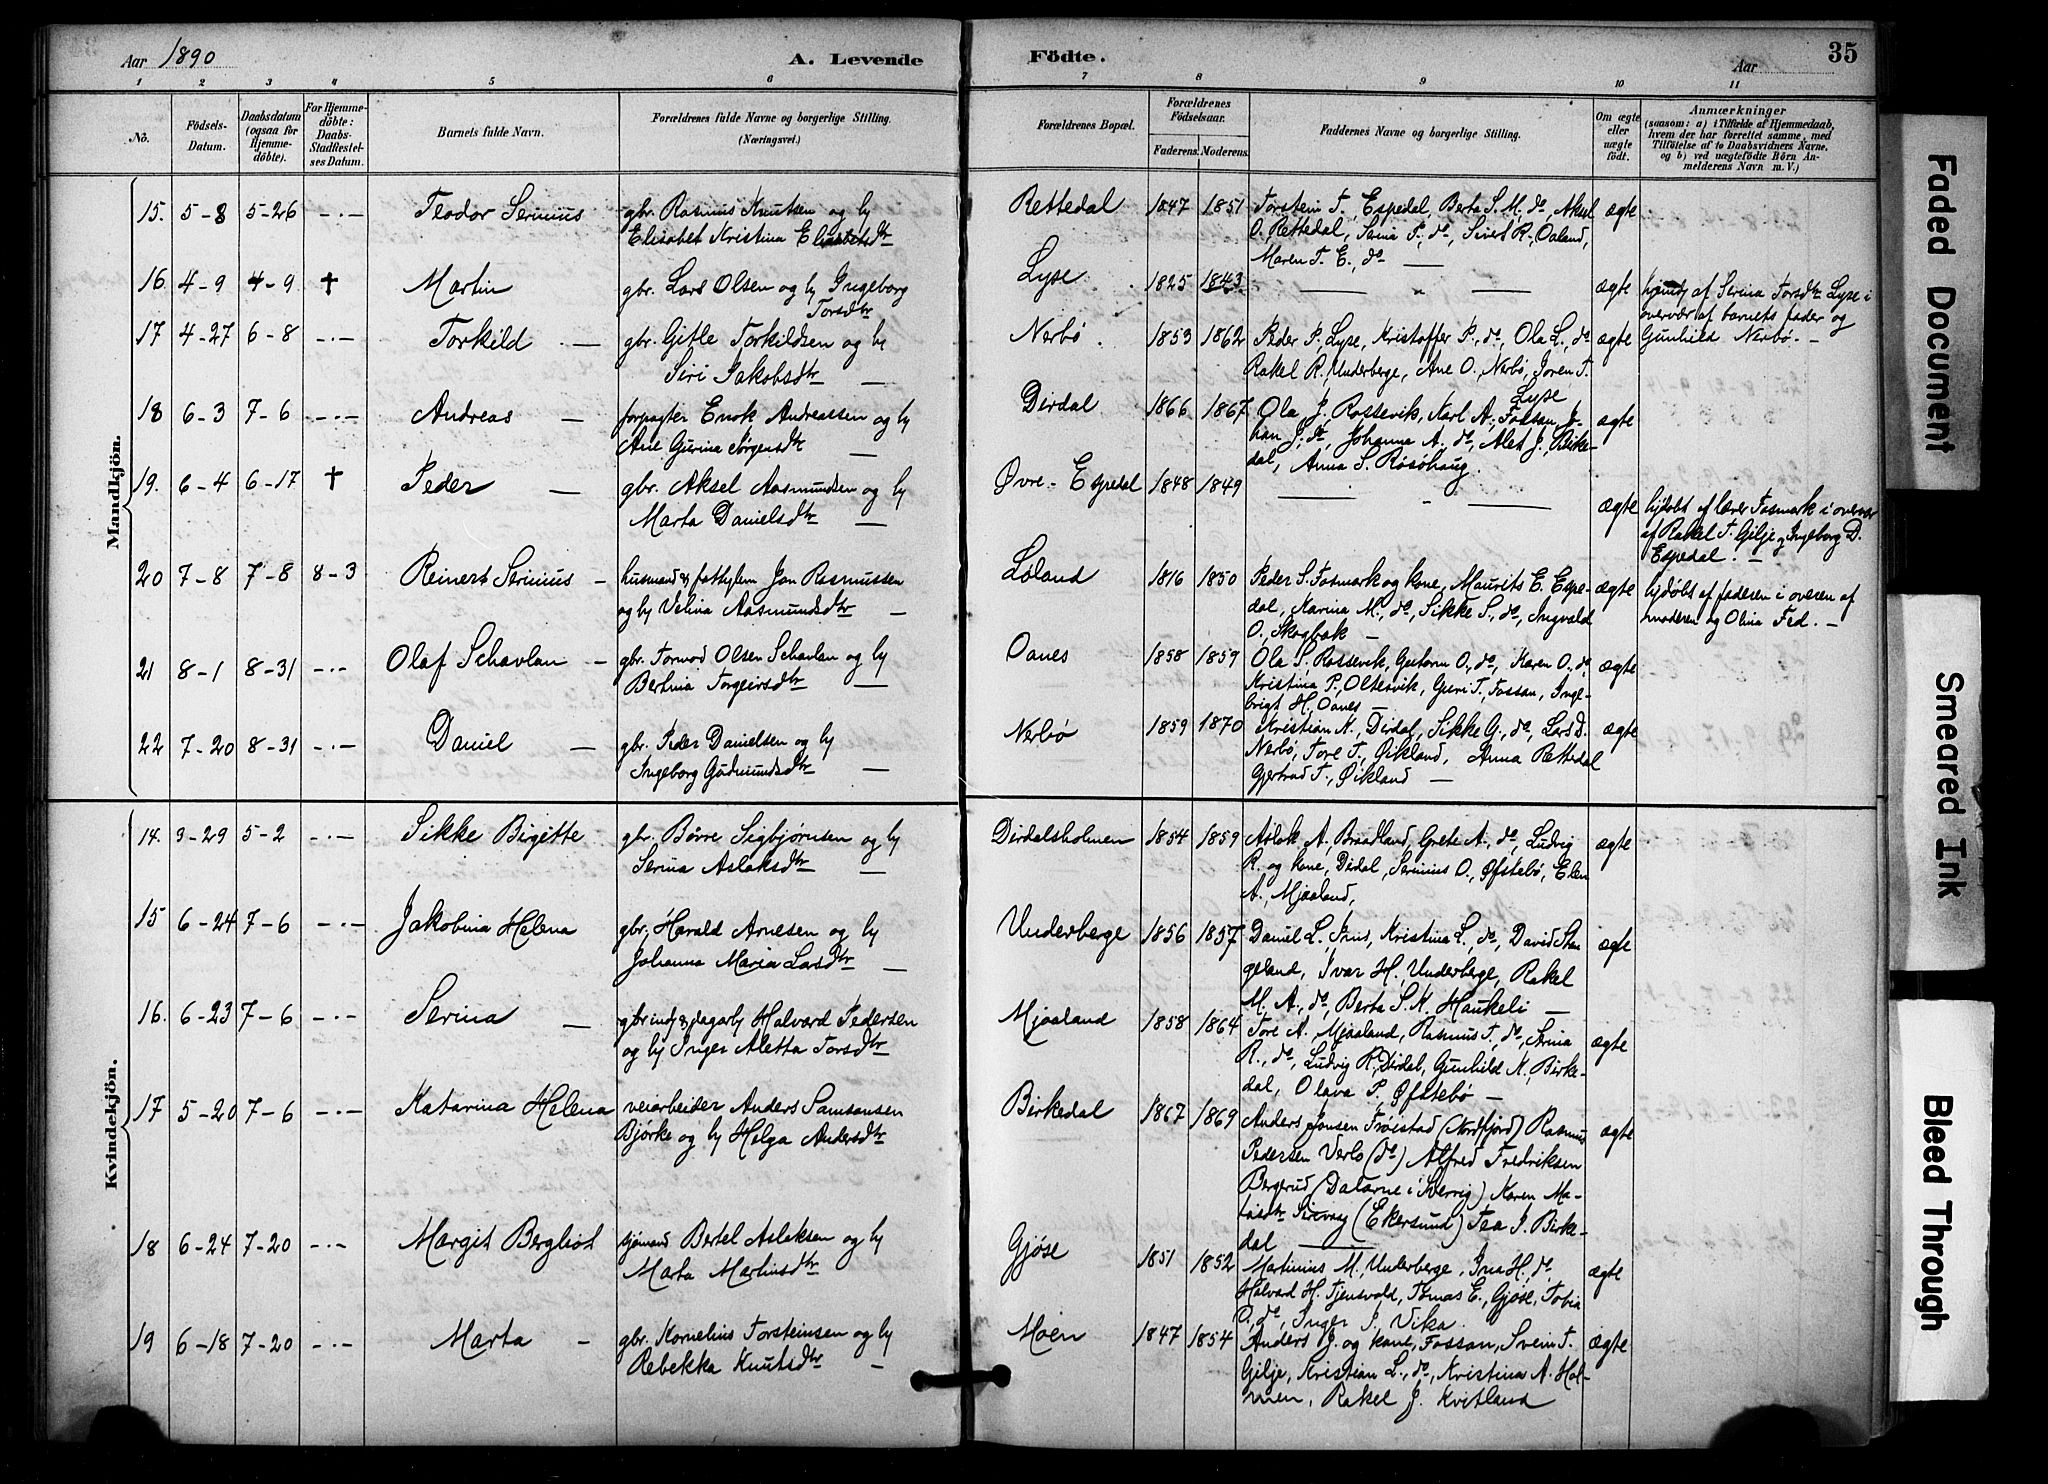 Aar 1890
A. Levende
Födte.
Aar
35
1 2 3 4 5 6 7 8 9 10 11
No.
Födsels-
Datum.
Daabsdatum
(ogsaa for
Hjemme-
döbte).
For Hjemme-
döbte:
Daabs-
Stadfæstel-
ses Datum.
Barnets fulde Navn.
Forældrenes fulde Navne og borgerlige Stilling.
(Næringsvei.)
Forældrenes Bopæl.
Forældrenes
Födselsaar.
Faderens. Moderens.
Faddernes Navne og borgerlige Stilling.
Om ægte
eller
uægte
födt.
Anmærkninger
(saasom: a) i Tilfælde af Hjemmedaab,
hvem der har forrettet samme, med
Tilföielse af to Daabsvidners Navne,
og b) ved uægtefödte Börn An-
melderens Navn m. V.)
Mandkjön.
15. 5-8 5-26 -.- Teodor Serinius gbr. Rasmus Knutsen og hy Rettedal 1847 1851 Torstein T. Espedal, Berta S. M. do, Aksel ægte
Elisabet Kristina O. Rettedal, Serina P., do, Sivert R. Oaland,
Maren T. E., do —
16. 4-9 4-9 † Martin gbr. Lars Olsen og hy Ingeborg Lyse 1825 1843 — „ — ægte hjemdb af Serina Torsdtr Lyse i
Torsdtr overvær af barnets fader og
17 4-27 6-8 -.- Torkild — gbr. Gitle Torkildsen og hy Nerbø. 1853 1862 Peder P. Lyse, Kristoffer P., do, Ola L., do ægte Gunhild Nerbø. —
Siri Jakobsdtr — Rakel R., Underberge, Ane O., Nerbø, Joren T.
Lyse
18 6-3 7-6 -.- Andreas — forpagter Enok Andreassen og hy Dirdal 1866 1867 Ola J. Rossevik, Karl A., Fossan, Jo- ægte
Ane Gurina Jørgensdtr — han J. do, Johanna A., do, Alet J., Birke-
dal, Anna S. Røsøhaug.
19. 6-4 6-17 † Peder — gbr. Aksel Aasmundsen og hy Øvre-Espedal 1848 1849 — „ — ægte hjdøbt af lærer Fosmark i overvær
Marta Danielsdtr — af Rakel T. Gilje og Ingeborg D.
Espedal. —
20 7-8 7-8 8-3 Reinert Serinius — husmand & fattiglem Jon Rasmussen Løland 1816 1850 Peder S. Fosmark og kone, Maurits E. Espe- ægte hjdøbt af faderen i overvær af
og hy Velina Aasmundsdtr — dal, Karina M., do, Sikke S., do, Ingvald moderen og Olina Fed. —
O., Skogbak —
21 8-1 8-31 -.- Olaf Schavlan — gbr. Tormod Olsen Schavlan og hy Oanes 1858 1859 Ola S. Rossevik, Guttorm O., do, Karen O., do ægte
Bertina Torgeirsdtr — Kristina P., Oltesvik, Guri T., Fossan, Inge-
brigt H. Oanes —
22 7-20 8-31 -.- Daniel — gbr. Peder Danielsen og hy Nerbø 1859 1870 Kristian K., Dirdal, Sikke G., do, Lars D. ægte
Ingeborg Gudmundsdtr — Nerbø, Tore T., Øikland, Anna Rettedal
Gjertrud T., Øikland —
Kvindekjön.
14. 3-29 5-2 -.- Sikke Birgitte gbr. Børre Sigbjørnsen og hy Dirdalsholmen 1854 1859 Aslak A. Braadland, Grete A., do, Ludvig ægte
Serina Aslaksdtr — R. og kone, Dirdal, Serinius O., Øfstebø, Elen
A., Mjaaland,
15 6-24 7-6 -.- Jakobina Helena gbr. Harald Arnesen og hy Underberge 1856 1857 Daniel L., Kristina L., do, David Stan ægte
Johanna Maria Larsdtr — geland, Ivar H. Underberge, Rakel
M. A., do, Berta S. K. Haukeli —
16. 6-23 7-6 -.- Serina — Halvard Pedersen Mjaaland 1858 1864 Tore A. Mjaaland, Rasmus T., do, Serina ægte
og hy Inger Aletta Torsdtr R., do, Ludvig R., Dirdal, Gunhild K., Birke-
dal, Olava P., Øfstebø —
17 5-20 7-6 -.- Katarina Helena veiarbeider Anders Samsonsen Birkedal 1867 1869 Anders Jonsen Frøistad (Nordfjord) Rasmus ægte
Bjørke og hy Helga Andersdtr Pedersen Verlo (do) Alfred Fredriksen
Bergerud (Dalarne i Sverrig) Karen Ma-
tisdtr Sirevaag (Ekersund) Tea J. Birke-
dal —
18 6-24 7-20 -.- Margit Bergliot sjømand Bertel Aslaksen og hy Gjøse 1851 1852 Martinius M., Underberge, Ina H., do ægte
Marta Martinsdtr Halvard H. Tjensvold, Tomas E., Gjøse, Tobia
O., do, Inger J., Vika.
19 6-18 7-20 -.- Marta — gbr. Kornelius Torsteinsen og hy Moen 1847 1854 Anders J. og kone, Fossan, Svein T. ægte
Rebekka Knutsdtr — Gilje, Kristian L., do, Kristina A. Hol-
men, Rakel J. Kvitland
Faded Document
Smeared Ink
Bleed Through